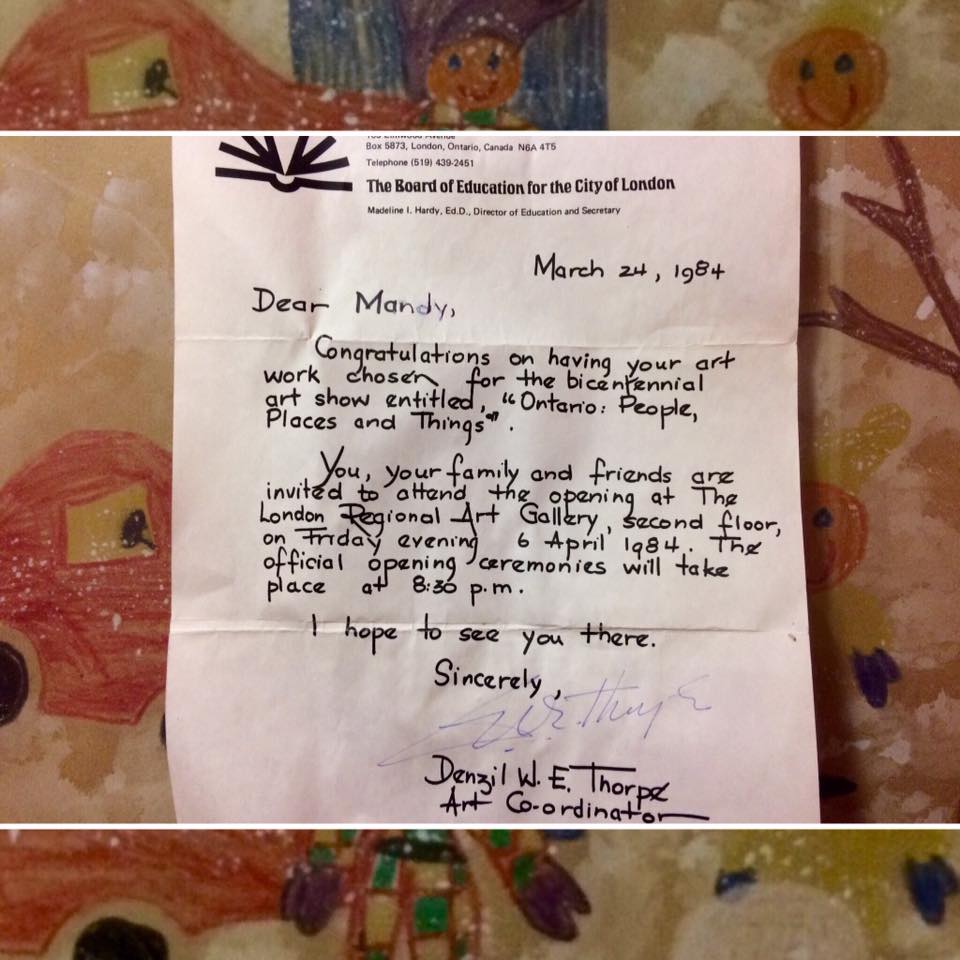 Box 5873, London, Ontario, Canada N6A 4T5
Telephone (519) 439-2451
The Board of Education for the City of London
Madeline I. Hardy, Ed.D., Director of Education and Secretary
March 24, 1984
Dear Mandy,
Congratulations on having your art
work chosen for the bicentennial
art show entitled, "Ontario: People,
Places and Things".
You, your family and friends are
invited to attend the opening at The
London Regional Art Gallery, second floor,
on Friday evening 6 April 1984. The
official opening ceremonies will take
place at 8:30 p.m.
I hope to see you there.
Sincerely,
Denzil W. E. Thorpe
Art Co-ordinator